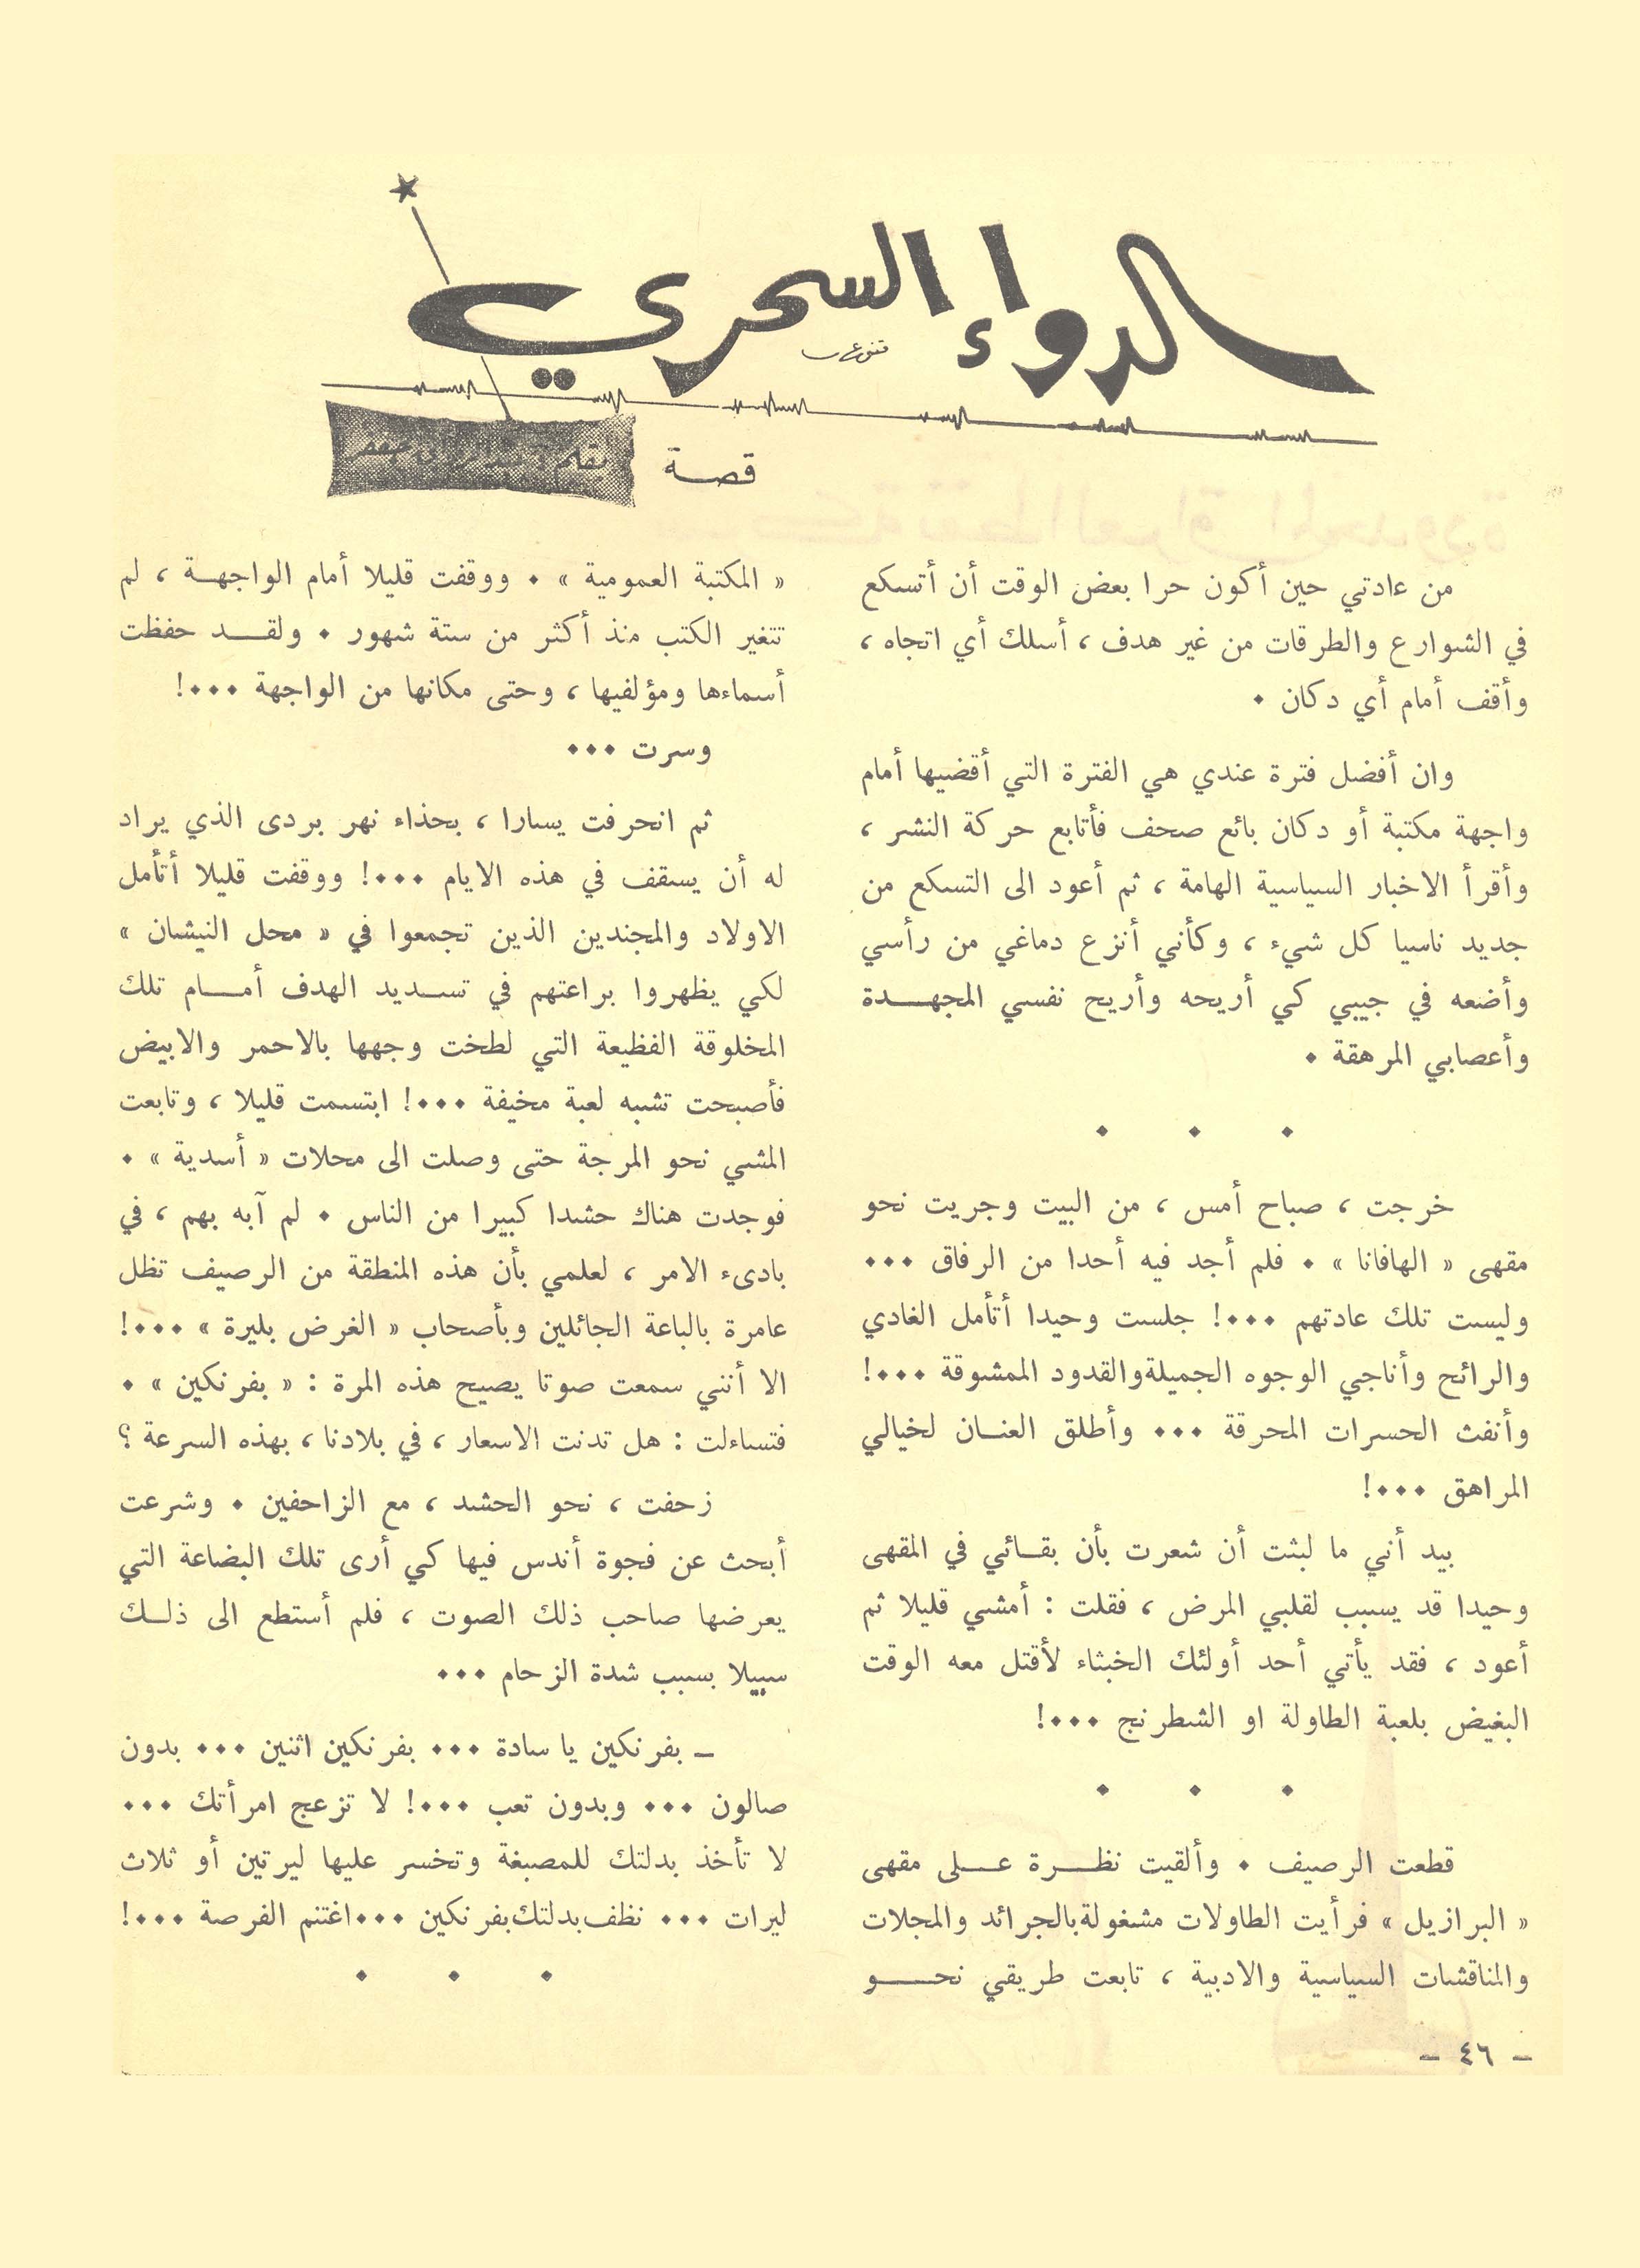 الدواء السحري
قصة
من عادتي حين أكون حرا بعض الوقت أن أتسكع
في الشوارع والطرقات من غير هدف ، أسلك أي اتجاه ،
وأقف أمام أي دكان ٠
وان أفضل فترة عندي هي الفترة التي أقضيها أمام
واجهة مكتبة أو دكان بائع صحف فأتابع حركة النشر ،
وأقرأ الاخبار السياسية الهامة ، ثم أعود الى التسكع من
جديد ناسيا كل شيء ، وكأني أنزع دماغي من رأسي
وأضعه في جيبي كي أريحه وأريح نفسي المجهدة
وأعصابي المرهقة ٠
٠ ٠ ٠
خرجت ، صباح أمس ، من البيت وجريت نحو
مقهى « الهافانا » ٠ فلم أجد فيه أحدا من الرفاق ٠٠٠
وليست تلك عادتهم ٠٠٠! جلست وحيدا أتأمل الغادي
والرائح وأناجي الوجوه الجميلة والقدود الممشوقة ٠٠٠!
وأنفث الحسرات المحرقة ٠٠٠ وأطلق العنان لخيالي
المراهق ٠٠٠!
بيد أني ما لبثت أن شعرت بأن بقائي في المقهى
وحيدا قد يسبب لقلبي المرض ، فقلت : أمشي قليلا ثم
أعود ، فقد يأتي أحد أولئك الخبثاء لأقتل معه الوقت
البغيض بلعبة الطاولة او الشطرنج ٠٠٠!
٠ ٠ ٠
قطعت الرصيف ٠ وألقيت نظرة على مقهى
« البرازيل » فرأيت الطاولات مشغولة بالجرائد والمجلات
والمناقشات السياسية والادبية ، تابعت طريقي نحو
« المكتبة العمومية » ٠ ووقفت قليلا أمام الواجهة ، لم
تتغير الكتب منذ أكثر من ستة شهور ٠ ولقد حفظت
أسماءها ومؤلفيها ، وحتى مكانها من الواجهة ٠٠٠!
وسرت ٠٠٠
ثم انحرفت يسارا ، بحذاء نهر بردى الذي يراد
له أن يسقف في هذه الايام ٠٠٠! ووقفت قليلا أتأمل
الاولاد والمجندين الذين تجمعوا في « محل النيشان »
لكي يظهروا براعتهم في تسديد الهدف أمام تلك
المخلوقة الفظيعة التي لطخت وجهها بالاحمر والابيض
فأصبحت تشبه لعبة مخيفة ٠٠٠! ابتسمت قليلا ، وتابعت
المشي نحو المرجة حتى وصلت الى محلات « أسدية » ٠
فوجدت هناك حشدا كبيرا من الناس ٠ لم آبه بهم ، في
بادىء الامر ، لعلمي بأن هذه المنطقة من الرصيف تظل
عامرة بالباعة الجائلين وبأصحاب « الغرض بليرة » ٠٠٠!
الا أنني سمعت صوتا يصيح هذه المرة : « بفرنكين » ٠
فتساءلت : هل تدنت الاسعار ، في بلادنا ، بهذه السرعة ؟
زحفت ، نحو الحشد ، مع الزاحفين ٠ وشرعت
أبحث عن فجوة أندس فيها كي أرى تلك البضاعة التي
يعرضها صاحب ذلك الصوت ، فلم أستطع الى ذلك
سبيلا بسبب شدة الزحام ٠٠٠
ـ بفرنكين يا سادة ٠٠٠ بفرنكين اثنين ٠٠٠ بدون
صالون ٠٠٠ وبدون تعب ٠٠٠! لا تزعج امرأتك ٠٠٠
لا تأخذ بدلتك للمصبغة وتخسر عليها ليرتين أو ثلاث
ليرات ٠٠٠ نظف بدلتك بفرنكين ٠٠٠ اغتنم الفرصة ٠٠٠!
٠ ٠ ٠
ـ ٤٦ ـ